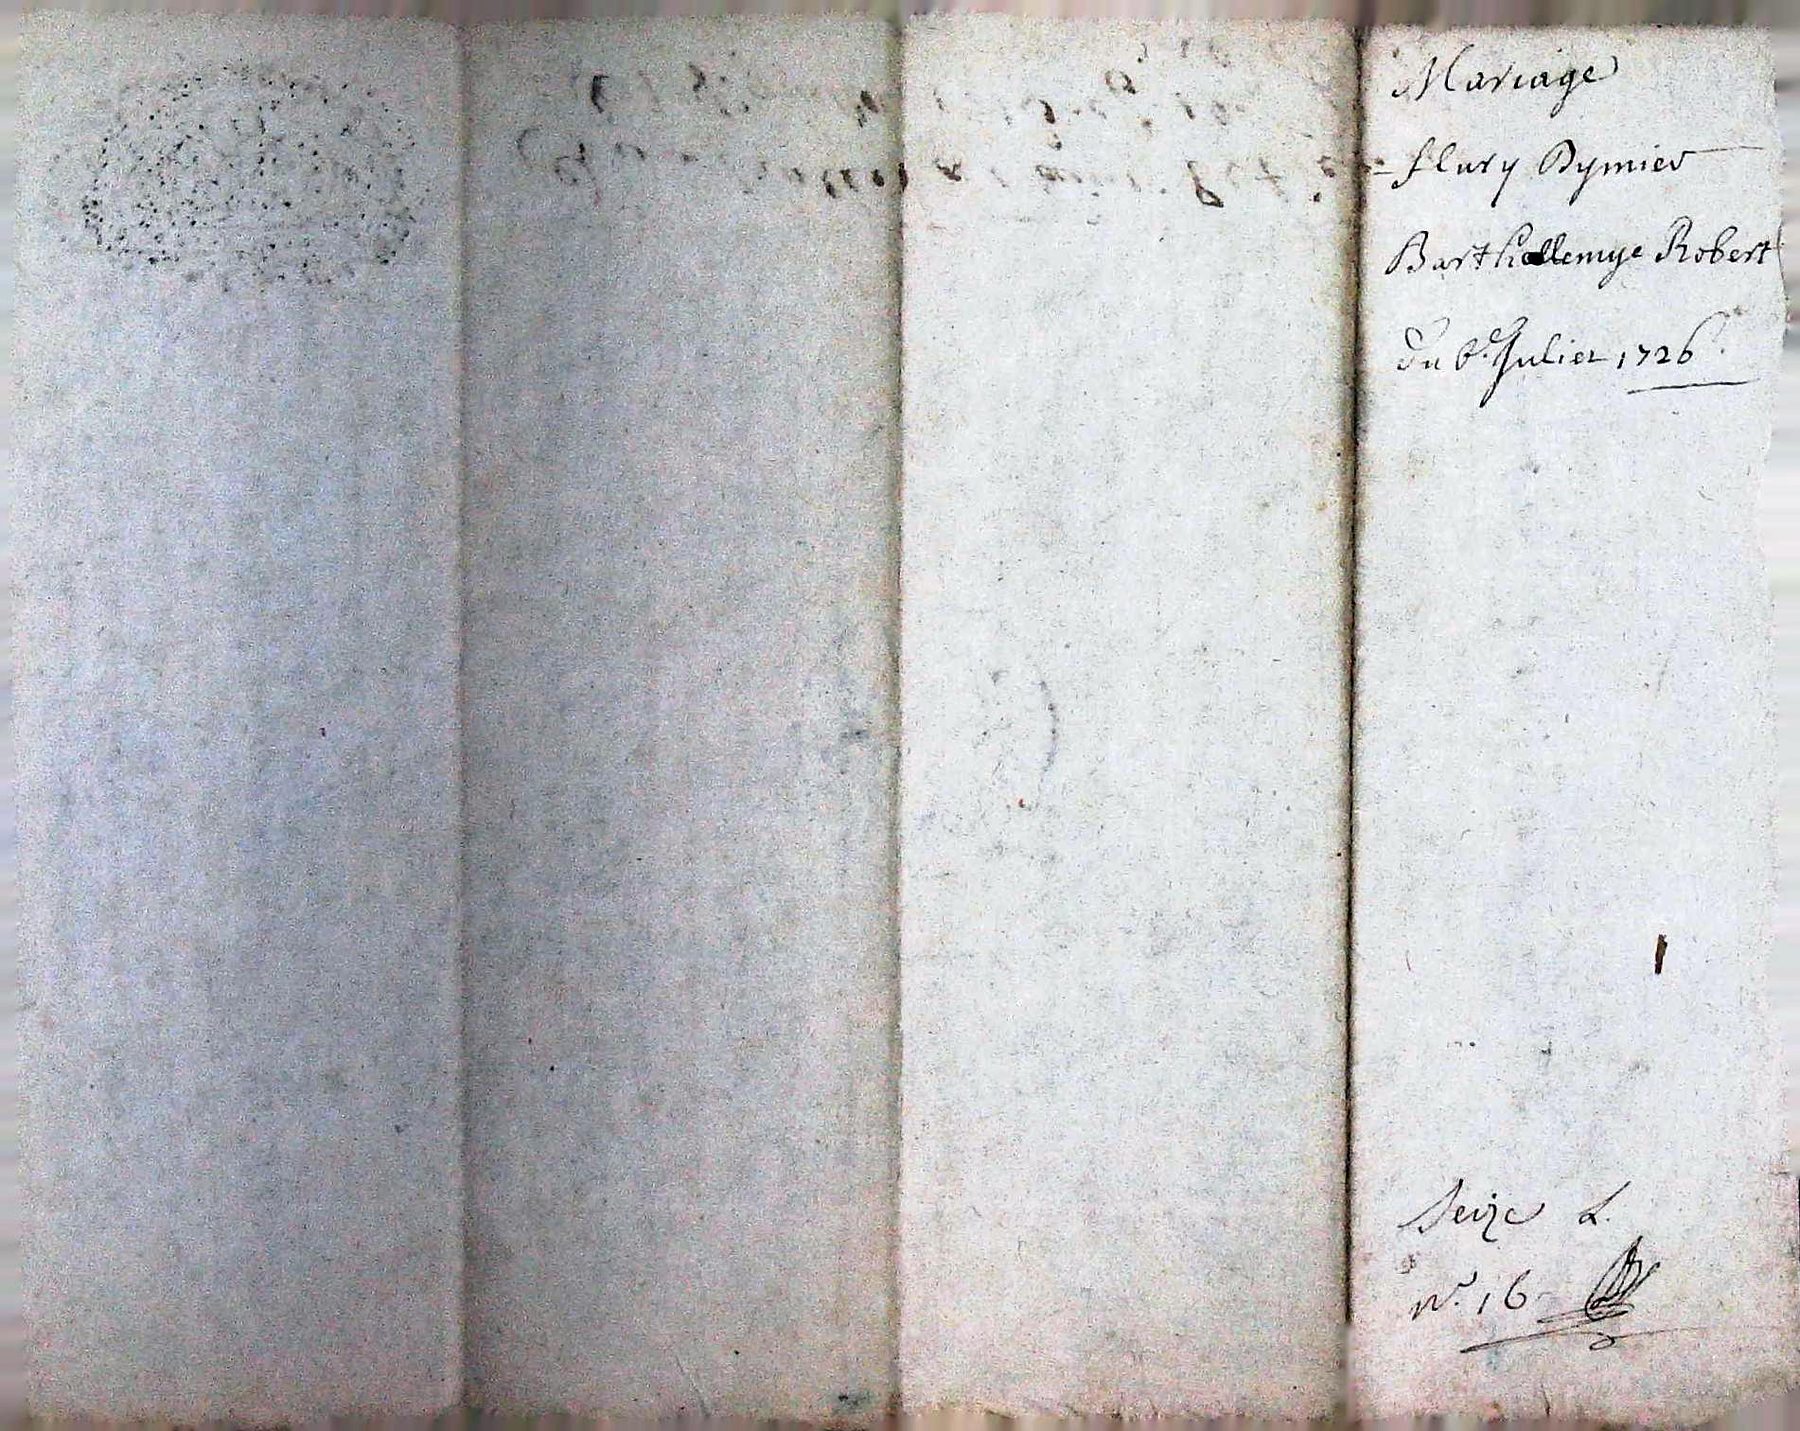 Mariage
flury Dymier
Barthellemye Robert
Du 6e Juliet 1726
Seize L.
No. 16